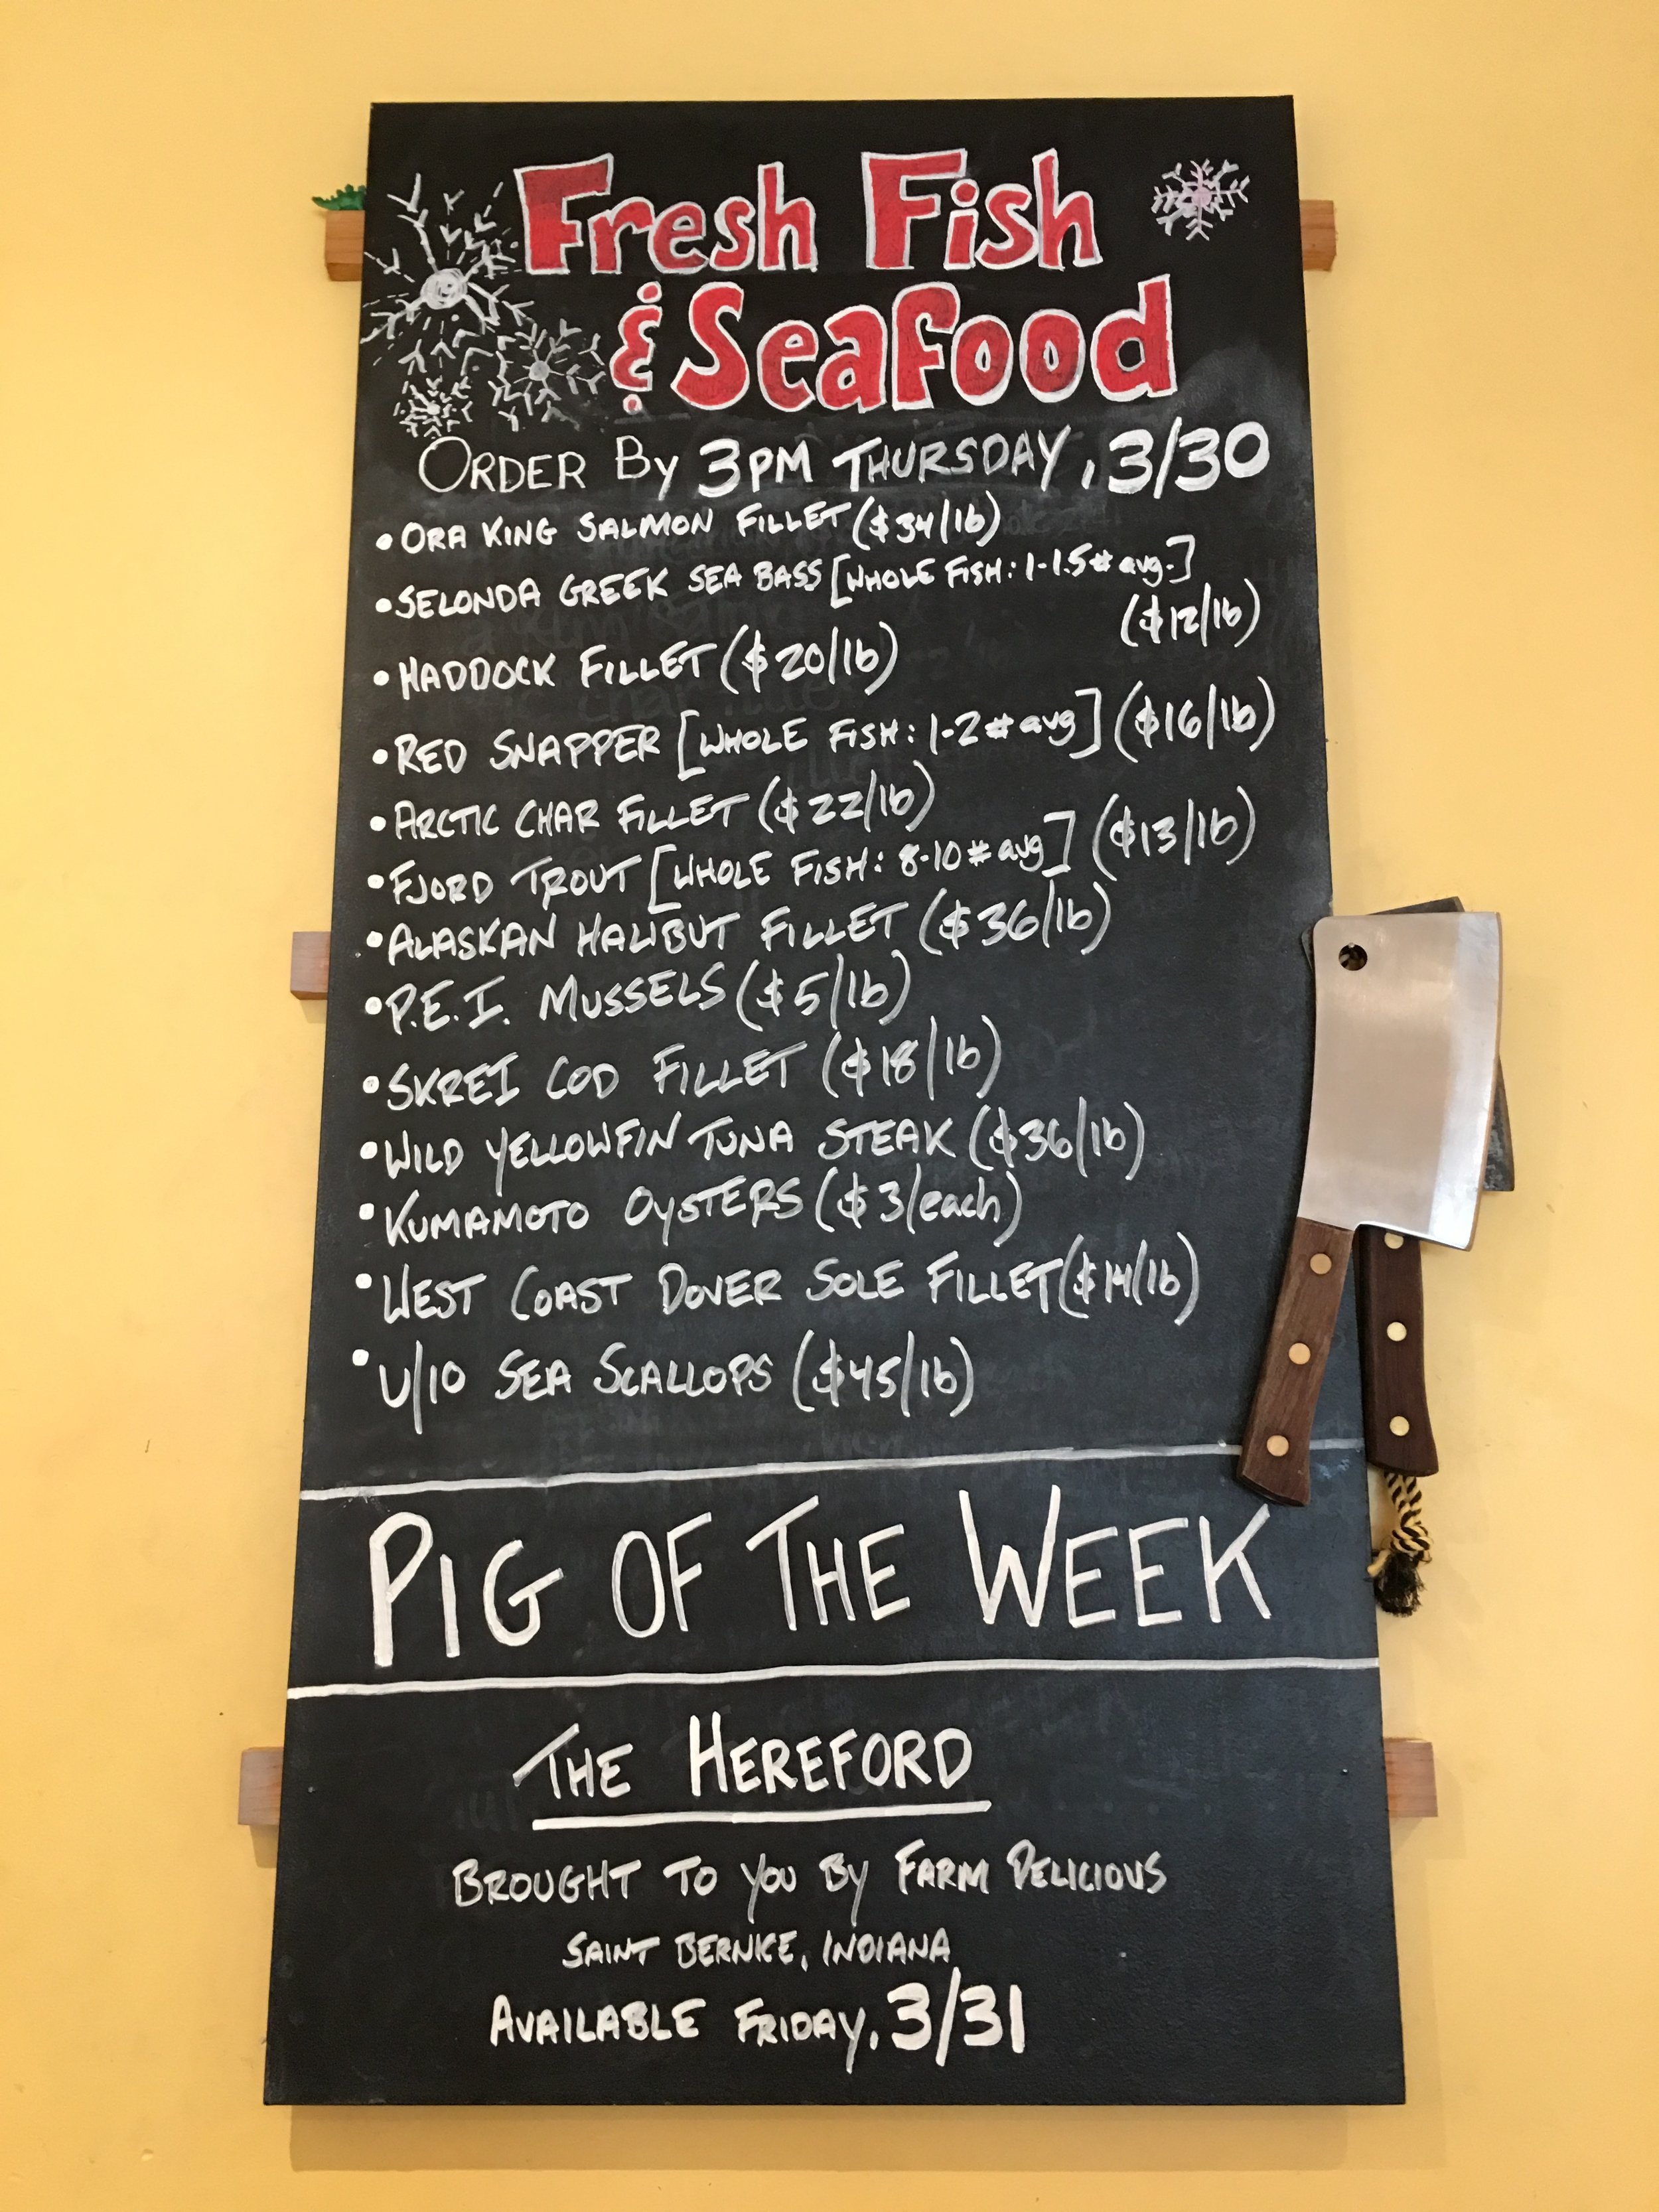 Fresh Fish
& Seafood
ORDER BY 3PM THURSDAY, 3/30
• ORA KING SALMON FILLET ($34/lb)
• SELONDA GREEK SEA BASS [WHOLE FISH: 1-1.5# avg.]
($12/lb)
• HADDOCK FILLET ($20/lb)
• RED SNAPPER [WHOLE FISH: 1-2# avg] ($16/lb)
• ARCTIC CHAR FILLET ($22/lb)
• FJORD TROUT [WHOLE FISH: 8-10# avg] ($13/lb)
• ALASKAN HALIBUT FILLET ($36/lb)
• P.E.I. MUSSELS ($5/lb)
• SKREI COD FILLET ($18/lb)
• WILD YELLOWFIN TUNA STEAK ($36/lb)
• KUMAMOTO OYSTERS ($3/each)
• WEST COAST DOVER SOLE FILLET ($14/lb)
• U/10 SEA SCALLOPS ($45/lb)
PIG OF THE WEEK
THE HEREFORD
BROUGHT TO YOU BY FARM DELICIOUS
SAINT BERNICE, INDIANA
AVAILABLE FRIDAY, 3/31